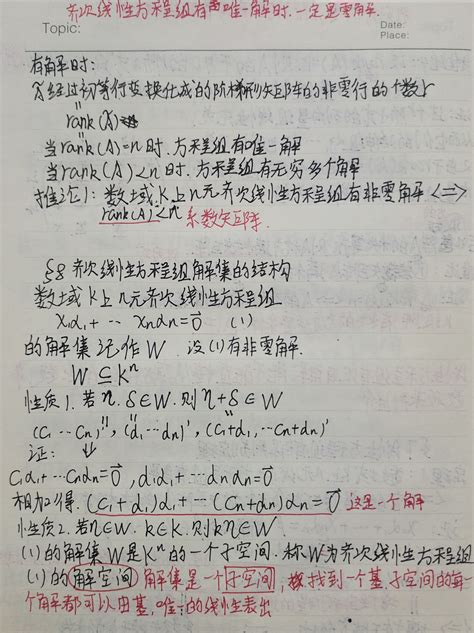 齐次线性方程组有唯一解时.一定是零解.
Topic:
Date:
Place:
有解时:
Ã经过初等行变换化成的阶梯形矩阵的非零行的个数r
rank(Ã)
当rank(A)=n时.方程组有唯一解
当rank(A)<n时.方程组有无穷多个解
推论1: 数域K上n元齐次线性方程组有非零解<=>
rank(A)<n 系数矩阵.
§8 齐次线性方程组解集的结构
数域K上n元齐次线性方程组
x₁α₁+ ⋯ xₙαₙ=0⃗ (1)
的解集记作W. 设(1)有非零解.
W ⊆ Kⁿ
性质1.若η.δ∈W.则η+δ∈W
(c₁ ⋯ cₙ)', (d₁⋯dₙ)', (c₁+d₁,⋯cₙ+dₙ)'
证: ⇓
c₁α₁+⋯cₙαₙ=0⃗, d₁α₁+⋯dₙαₙ=0⃗
相加得.(c₁+d₁)α₁+⋯(cₙ+dₙ)αₙ=0⃗ 这是一个解
性质2.若η∈W.k∈K.则kη∈W.
(1)的解集W是Kⁿ的一个子空间.称W为齐次线性方程组
(1)的解空间 解集是一个子空间,找到一个基.子空间的每
个解都可以由基.唯一的线性表出